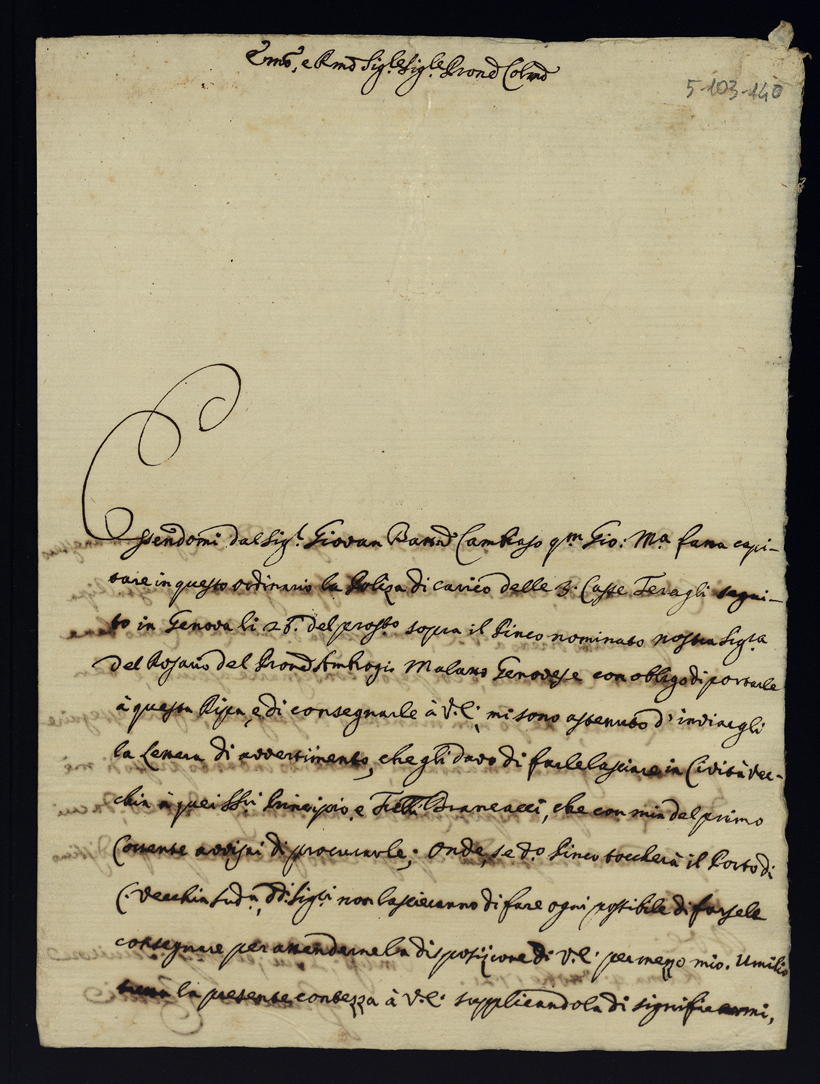 Emo, e Rmo Sig.le Sig.le Prone Colmo
5-103-140
Essendomi dal Sig.le Giovan Batta Cambiaso qm Gio: Ma fatta capi-
tare in questo ordinario la Poliza di carico delle 3. Casse segui-
to in Genova li 26. del prossto sopra il Pinco nominato nostra Sigra
del Rosario del Prone Ambrogio Genovese con obligo di portarle
à questa Ripa, e di consegnarle à V.E., mi sono astenuto d'inviargli
la Lettera di avvertimento, che gli davo di farle lasciare in Cività vec-
chia à quei SSri Principio, e Fratelli Brancacci, che con mia del primo
Corrente avvisai di procurarle; Onde, se do Pinco toccherà il Porto di
C. Vecchia sudo, ddi Sigri non lascieranno di fare ogni possibile di farsele
consegnare per attenderne la disposizione di V.E. per mezzo mio. Umilio
la presente contezza à V.E. supplicandola di significarmi,